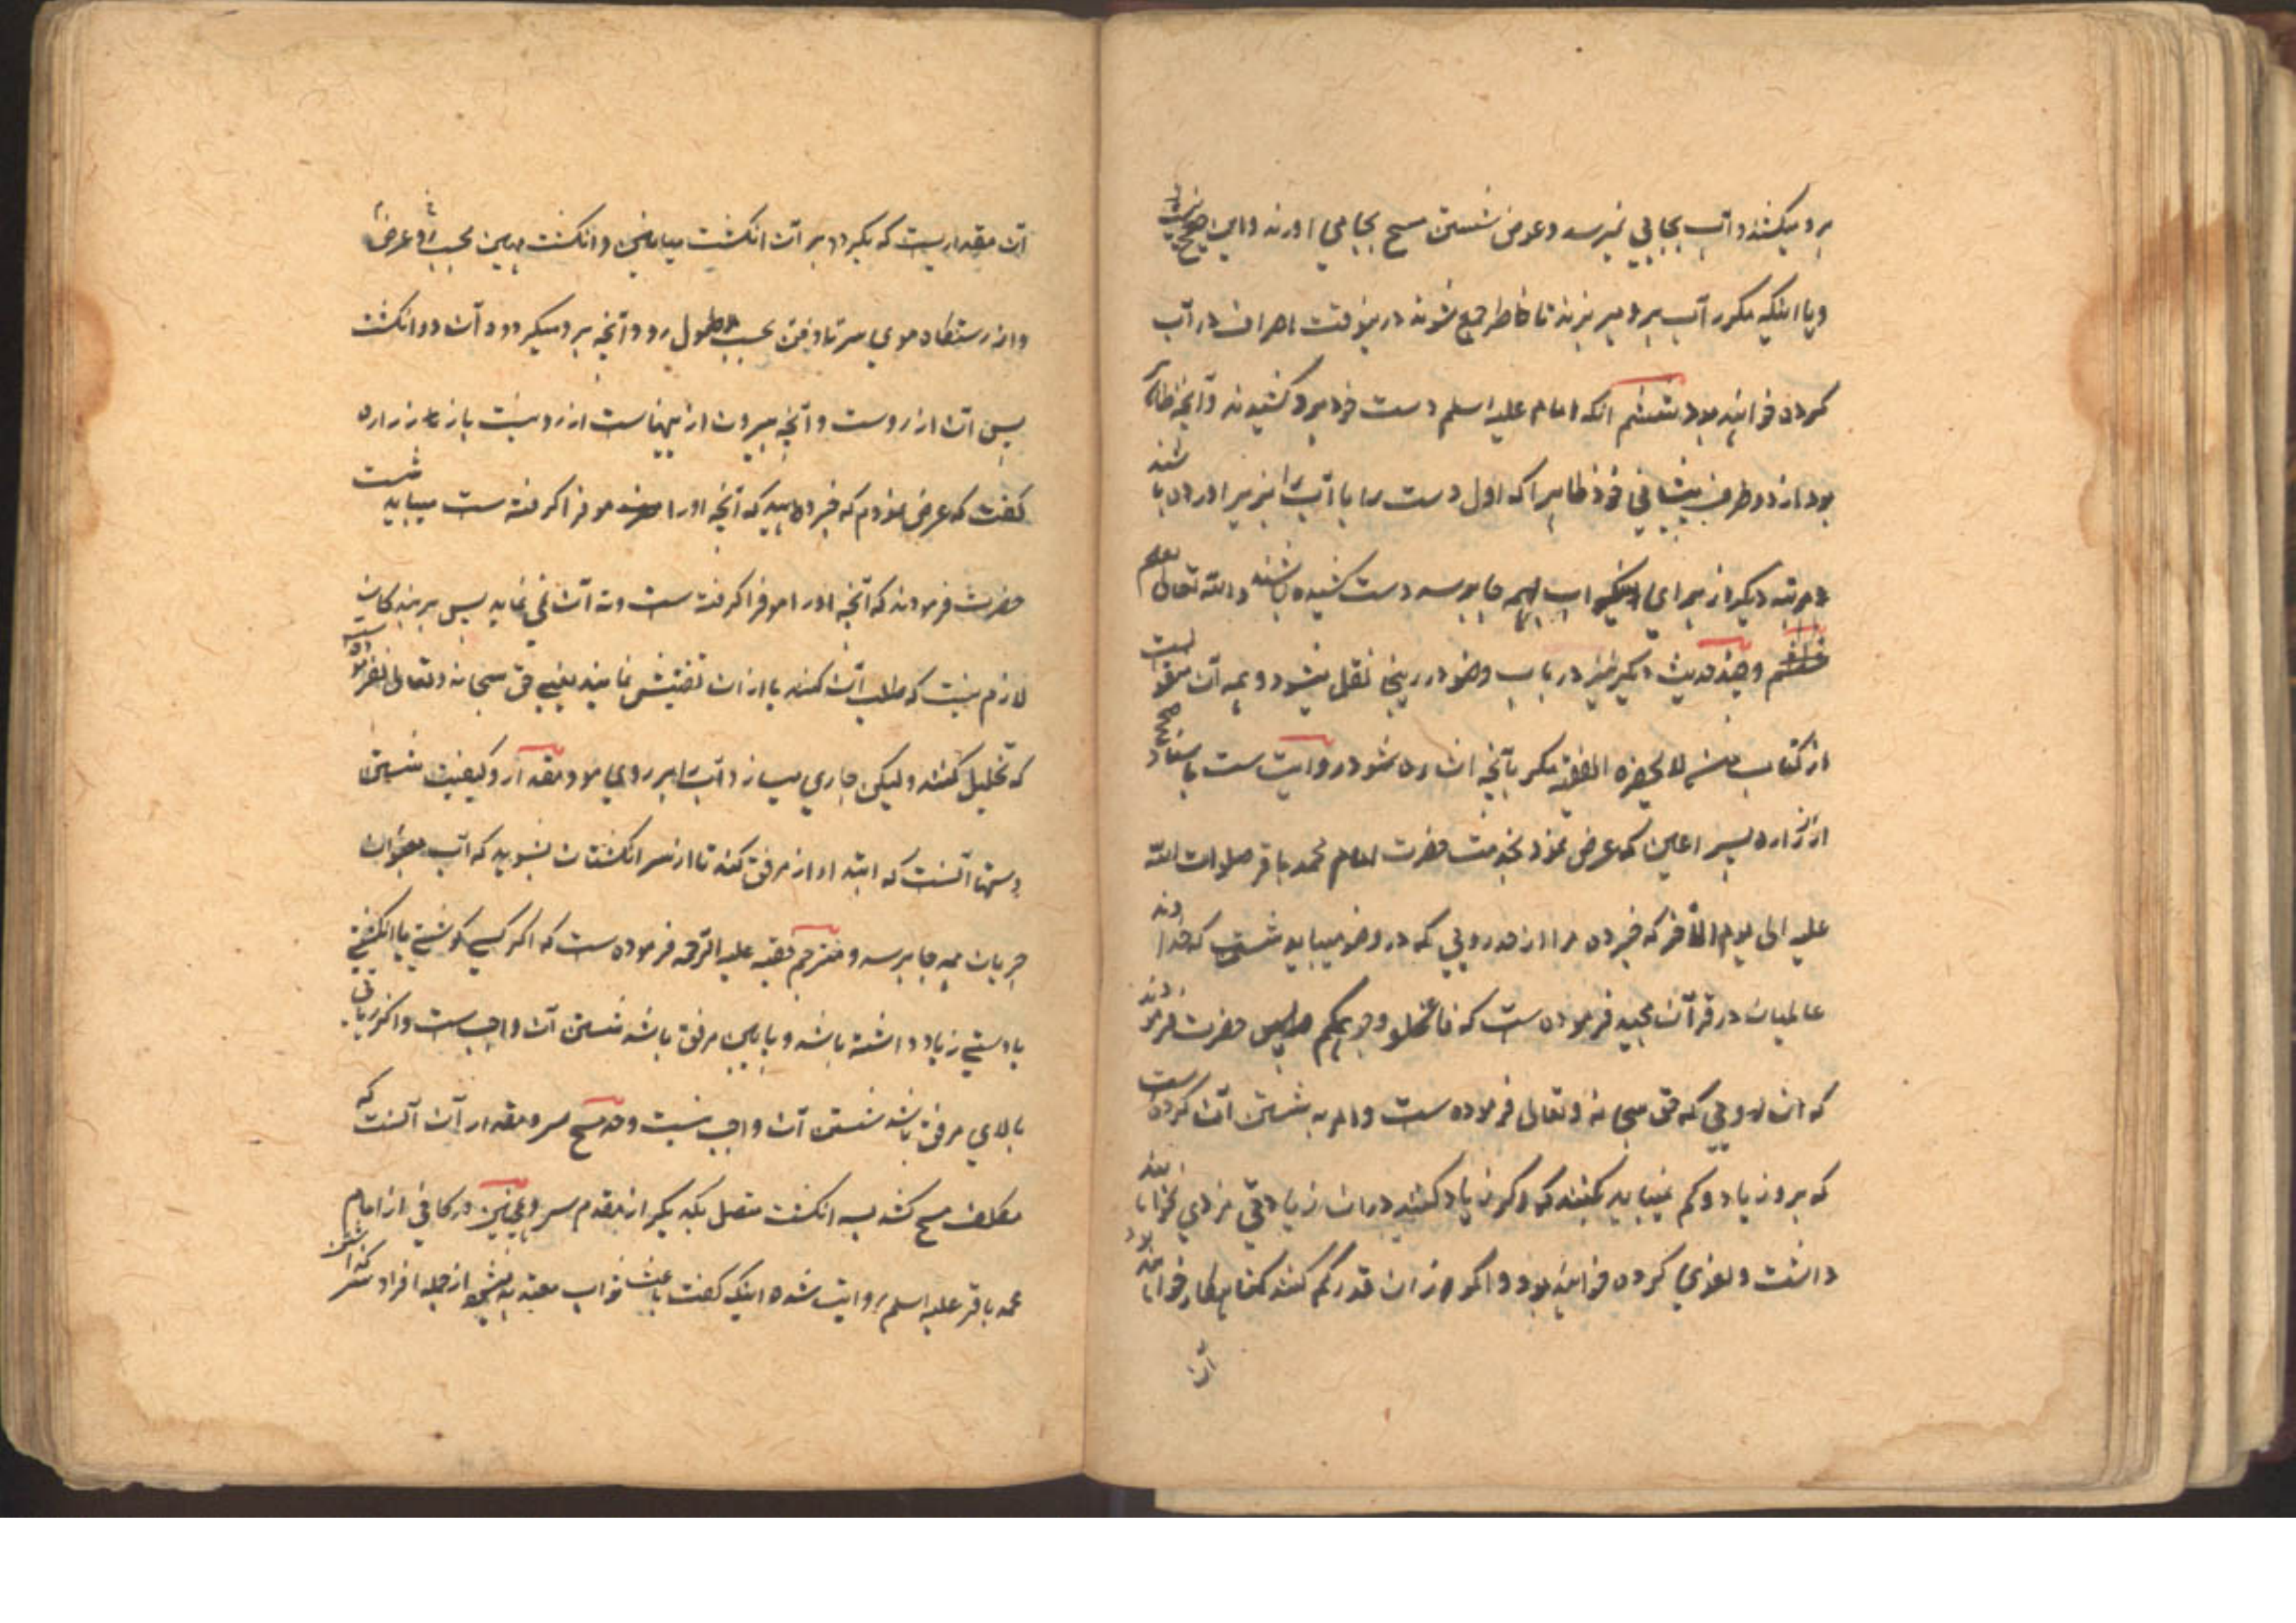 برو میکشند و آب بجایی نمیرسد و عوض شستن مسح بجا می اورند و این صحیح نیست
و یا اینکه مکرر آب برو میریزند تا خاطر جمع شوند درینوقت اسراف در آب
کرده خواهند بود ششم انکه امام علیه السلم دست خود برو کشیدند و آنچه ظاهر
بود از دو طرف پیشانی خود ظاهرا که اول دست را با آب بزیر آورده باشند
و مرتبه دیگر از برای اینکه آب بهمه جا برسد دست کشیده باشند والله تعالی یعلم
وچند حدیث دیگر نیز در باب وضو درینجا نقل میشود و همه آن منقولست
از کتاب من لا یحضره الفقیه مگر بآنچه اشاره شود روایت ست باسناد صحیح
از زراره پسر اعین که عرض نمود بخدمت حضرت امام محمد باقر صلوات الله
علیه الی یوم الآخر که خبر ده مرا از حد رویی که در وضو میباید شست که خداوند
عالمیان در قرآن مجید فرموده ست که فاغسلوا وجوهکم پس حضرت فرمودند
که ان رویی که حق سبحانه و تعالی فرموده ست و امر به شستن آن کرده ست
که برو زیاد و کم نمیباید بکنند که اگر زیاد کنند در ان زیادتی مزدی نخواهند
داشت و لغوی کرده خواهند بود و اگر از ان قدر کم کنند گناه کار خواهند بود
آن
آن مقداریست که بگردد بر آن انگشت میانین و انگشت مهین بحسب عرض
و از رستنگاه موی سر تا ذقن بحسب طول رو و آنچه برو میگردد آن دو انگشت
پس آن از روست و آنچه بیرون از اینهاست از رو نیست باز زراره
گفت که عرض نمودم که خبر دهید که آنچه او را مو فرا گرفته ست میباید شست
حضرت فرمودند که آنچه او را مو فرا گرفته ست و ته آن نمی نماید پس بر بندگان
لازم نیست که طلب آن کنند یا از ان تفتیش نمایند یعنی حق سبحانه و تعالی نفرموده ست
که تخلیل کنند و لیکن جاری میسازد آب را بر روی مو و مقدار و کیفیت شستن
دستها آنست که ابتدا از مرفق کند تا از سر انگشتان بشوید که آب بعنوان
جریان همه جا برسد و مترجم فقیه علیه الرحمه فرموده ست که اگر کسی گوشتی یا انگشتی
یا دستی زیاد داشته باشد و پایین مرفق باشد شستن آن واجب ست و اگر زیادتی
بالای مرفق باشد شستن آن واجب نیست و حد مسح سر و مقدار آن آنست که
مکلف مسح کشد بسه انگشت متصل بکدیگر از مقدم سر و همچنین در کافی از امام
محمد باقر علیه السلم روایت شده اینک گفت باعث ثواب معتد به میشود از جمله افراد